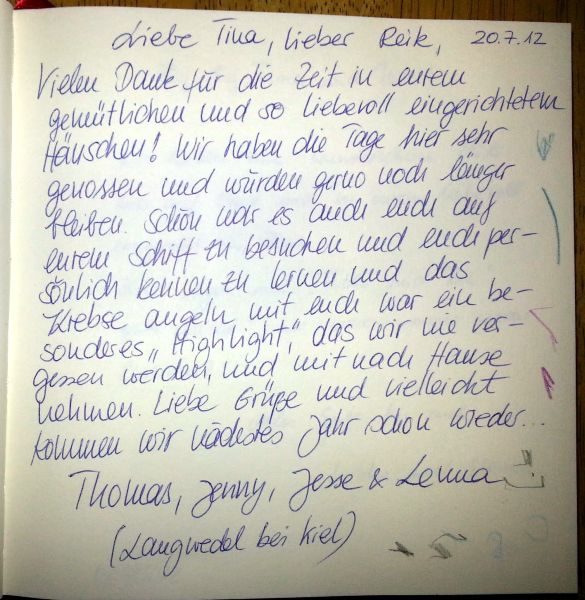 Liebe Tina, lieber Reik, 20.7.12
Vielen Dank für die Zeit in eurem
gemütlichen und so liebevoll eingerichtetem
Häuschen! Wir haben die Tage hier sehr
genossen und würden gerne noch länger
bleiben. Schön war es auch euch auf
eurem Schiff zu besuchen und euch per-
sönlich kennen zu lernen und das
Krebse angeln mit euch war ein be-
sonderes „Highlight", das wir nie ver-
gessen werden, und mit nach Hause
nehmen. Liebe Grüße und vielleicht
kommen wir nächstes Jahr schon wieder...
Thomas, Jenny, Jesse & Lenna
(Langwedel bei Kiel)